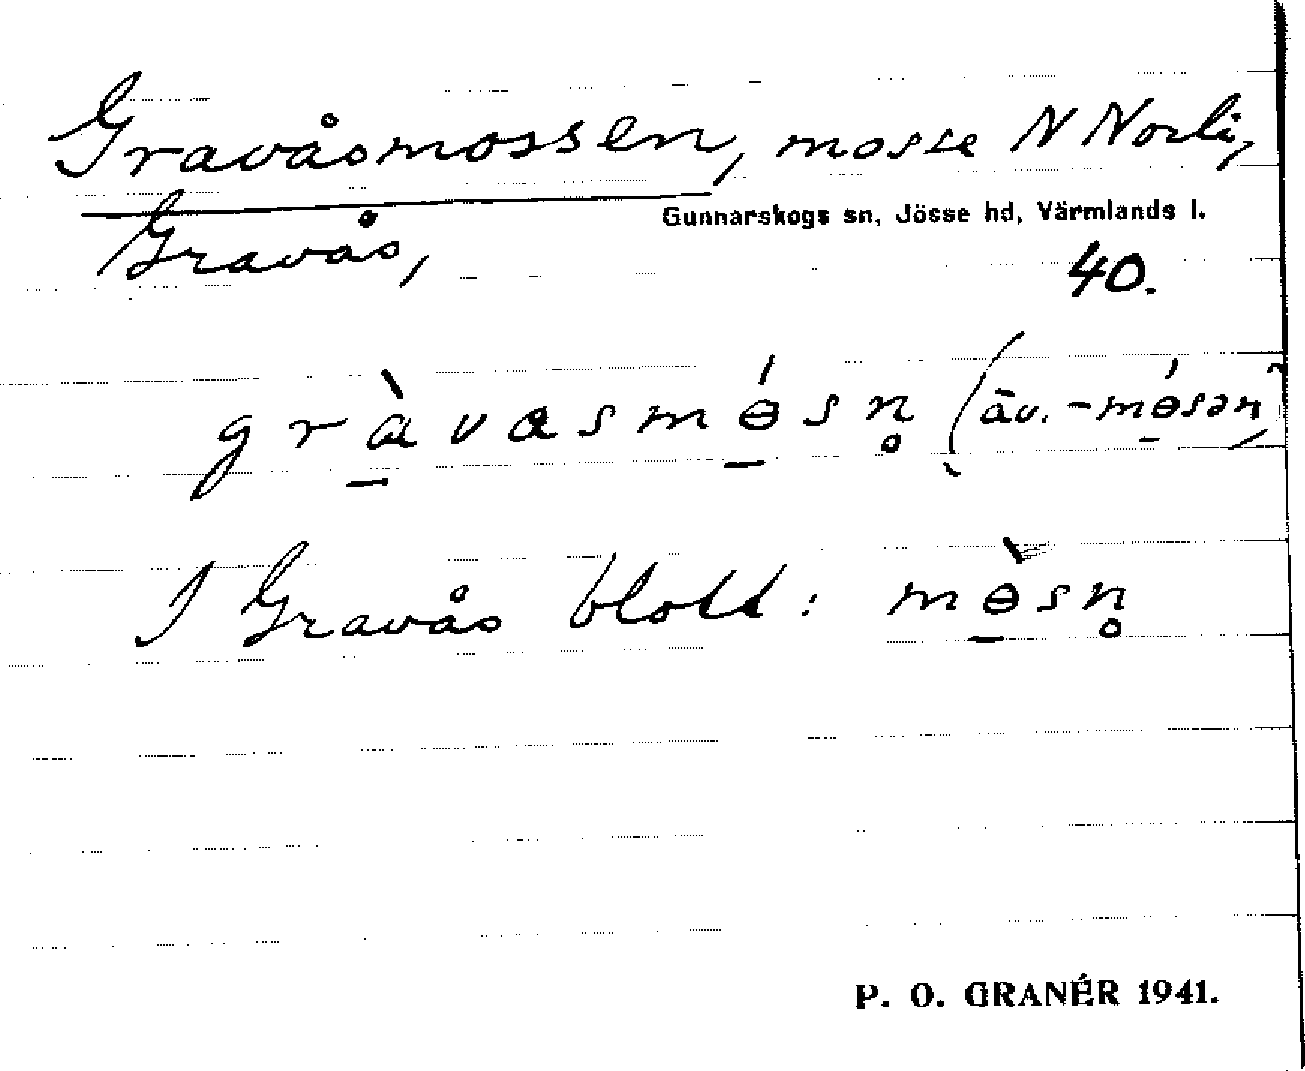 Gravåsmossen, mosse N Norli,
Gunnarskogs sn, Jösse hd, Värmlands l.
Gravås,
40.
gràvasmǿsn̥ (äv. -mǿsən)
I Gravås blott: mɵ̀sn̥
P. O. GRANÉR 1941.